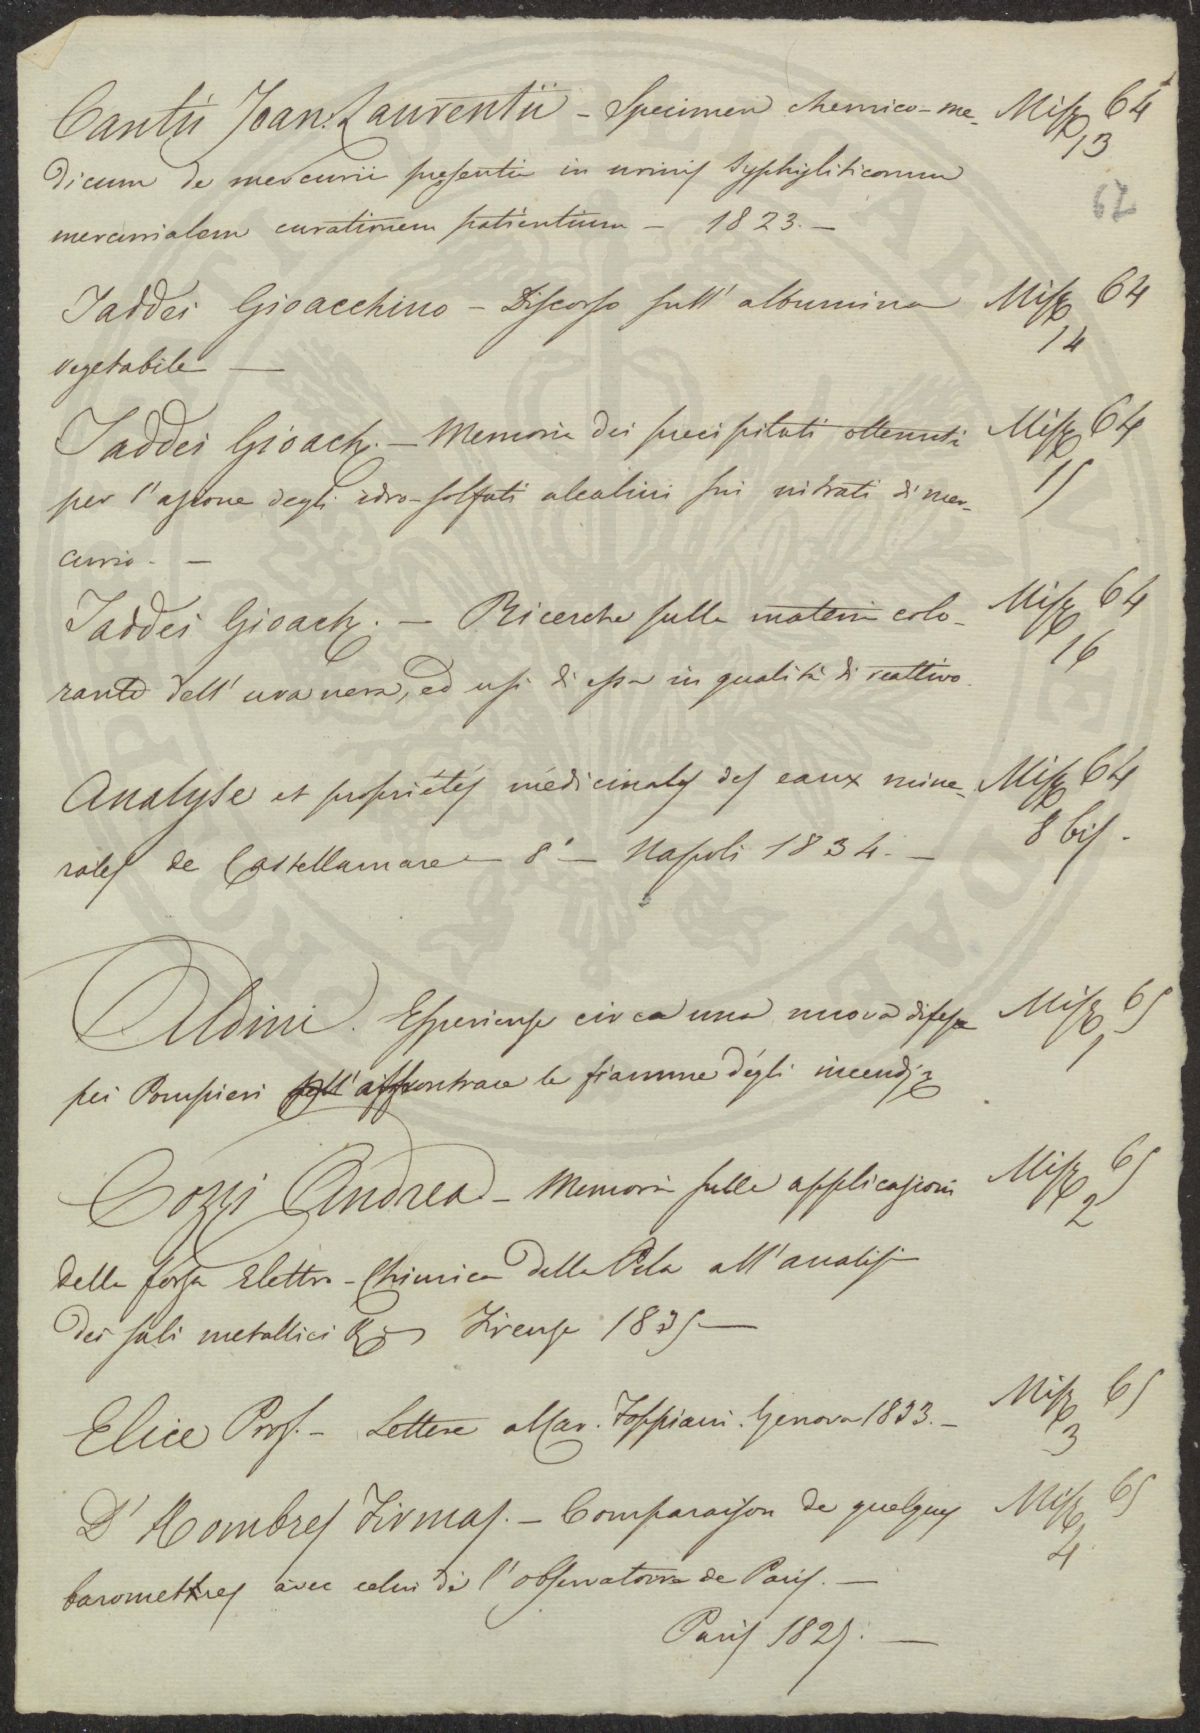 Cantù Joan: Laurentii - Specimen chemico-me- Misc 64
13
dicum de mercurii presentia in urinis syphyliticorum
62
mercurialem curationem patientium - 1823. -
Taddei Gioacchino - Discorso sull' albumina Misc 64
14
vegetabile -
Taddei Gioach. - Memoria dei precipitati ottenuti Misc 64
15
per l'azione degli idro-solfati alcalini sui nitrati di mer-
curio. -
Taddei Gioach. - Ricerche sulla materia colo- Misc 64
16
rante dell' uva nera, ed usi di essa in qualità di reattivo.
Analyse et propriétés médicinales des eaux mine- Misc 64
8 bis -
rales de Castellamare - 8° - Napoli 1834. -
Aldini. Esperienze circa una nuova difesa Misc 65
1
pei Pompieri affrontrare le fiamme degli incendj
Cozzi Andrea - Memoria sulle applicazioni Misc 65
2
della forza Elettro-Chimica della Pila all'analisi
dei sali metallici Firenze 1835 -
Elice Prof. - Lettere al Mar. Genova 1833. - Misc 65
3
D' Hombres Firmas. - Comparaison de quelques Misc 65
4
barometres avec celui de l'observatoire de Paris. -
Paris 1825. -